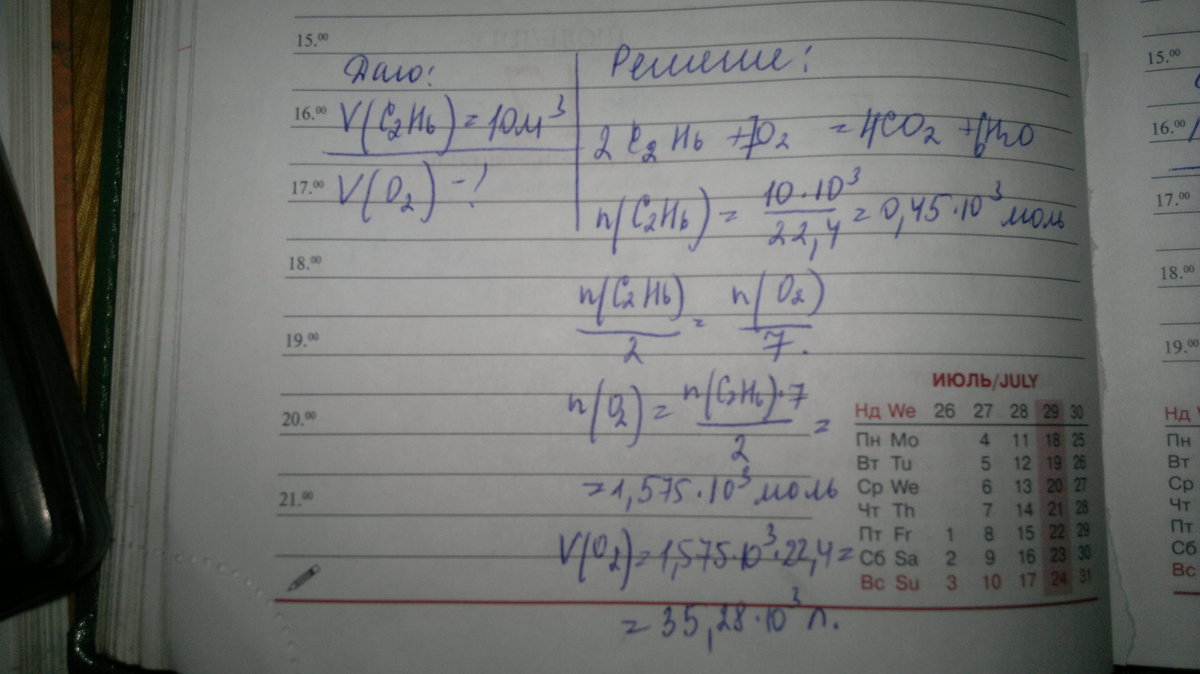 15.00
Дано:
Решение:
16.00
V(C2H6) = 10м3
2 C2H6 + 7O2 = 4CO2 + 6H2O
17.00
V(O2) - ?
n(C2H6) = 10·10^3 / 22,4 = 0,45·10^3 моль
18.00
n(C2H6) / 2 = n(O2) / 7.
19.00
20.00
n(O2) = n(C2H6)·7 / 2 =
= 1,575·10^3 моль
21.00
V(O2) = 1,575·10^3·22,4 =
= 35,28·10^3 л.
ИЮЛЬ/JULY
Нд We 26 27 28 29 30
Пн Mo 4 11 18 25
Вт Tu 5 12 19 26
Ср We 6 13 20 27
Чт Th 7 14 21 28
Пт Fr 1 8 15 22 29
Сб Sa 2 9 16 23 30
Вс Su 3 10 17 24 31
15.00
16.00
17.00
18.00
19.00
Нд
Пн
Вт
Ср
Чт
Пт
Сб
Вс